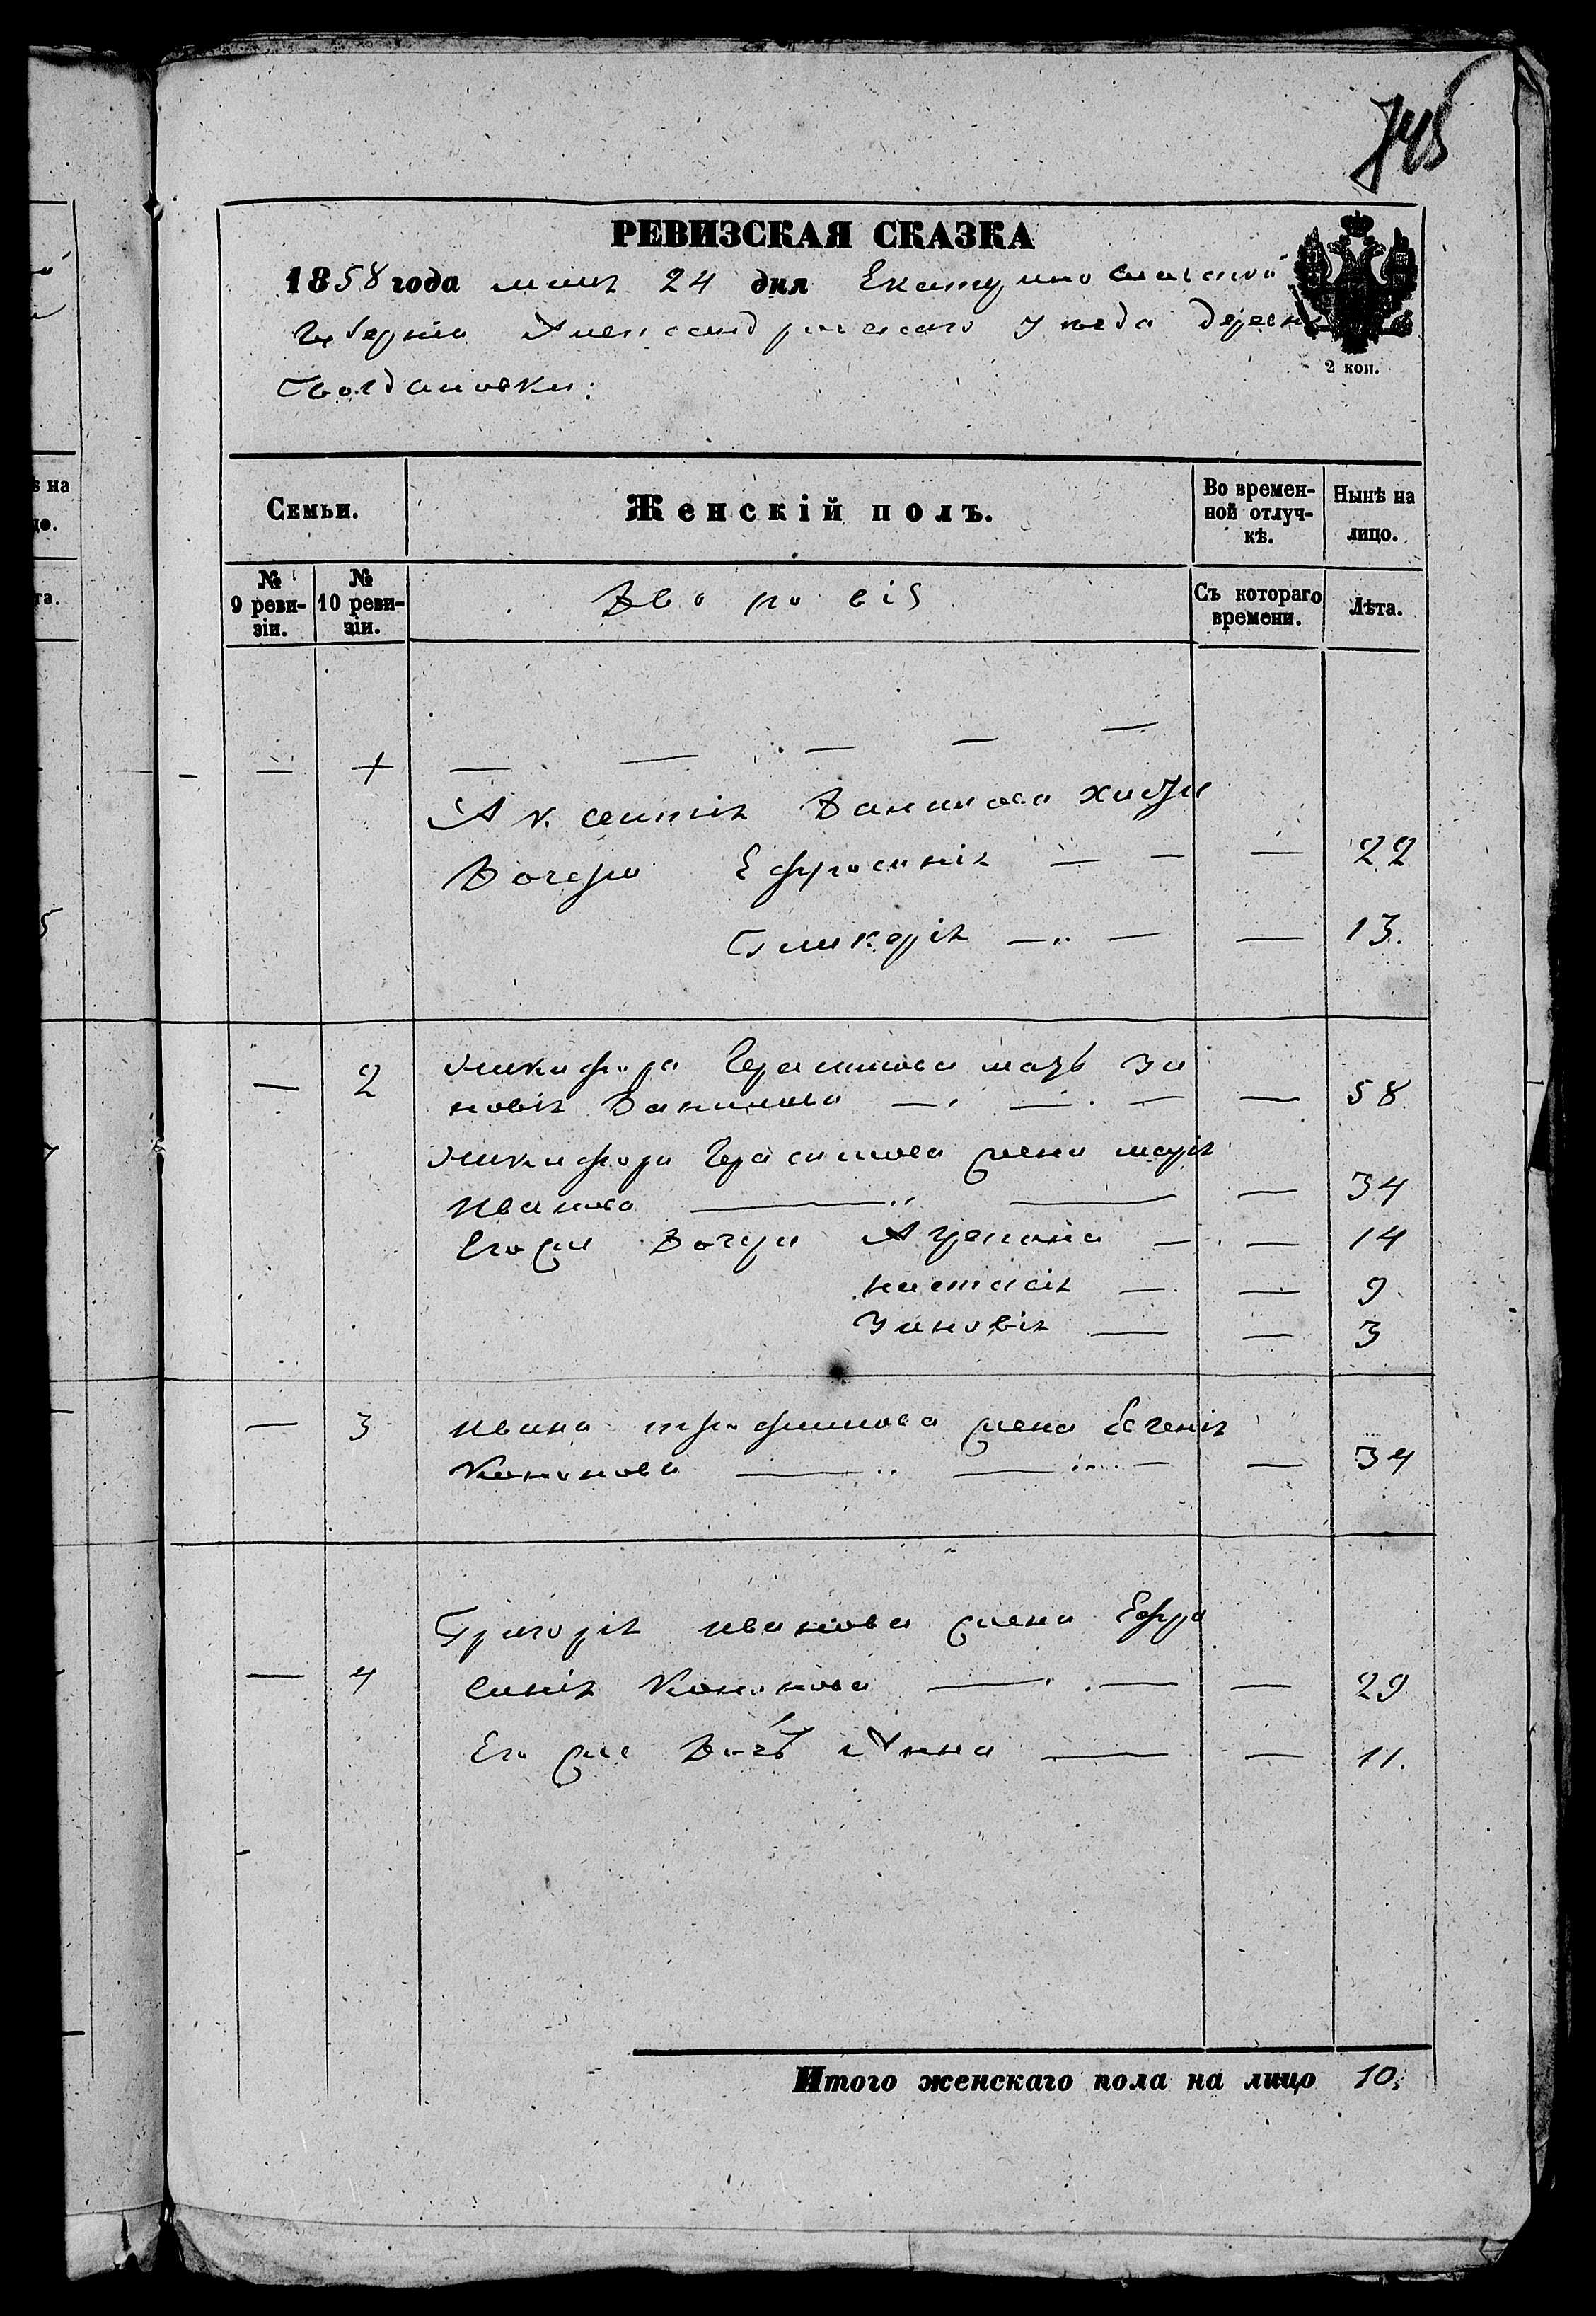 745
РЕВИЗСКАЯ СКАЗКА
1858 года маія 24 дня Екатеринославской
Губерніи Александровскаго уезда деревни
Богдановки:
2 коп.
Семьи.
Женскій полъ.
Во времен-
ной отлуч-
кѣ.
Нынѣ на
лицо.
№
9 реви-
зіи.
№
10 реви-
зіи.
Дворовіе
Съ котораго
времени.
Лѣта.
Аксентія Данилова
Дочери Ефросинія — — — 22
Гликерія — — — 13.
— 2 Никифора Герасимова мать Зи
новія Данилова — — — — 58
Никифора Герасимова жена марія
Иванова — — — 34
Егоже Дочери Агрепина — — 14
настасія — — 9
Зиновія — — 3
— 3 Ивана трофимова жена Евгенія
Кононова — — — — 34
Григорія иванова жена Ефро
— 4 синія Кононова — — — 29
Его же Дочь Анна — — 11.
Итого женскаго пола на лицо 10.